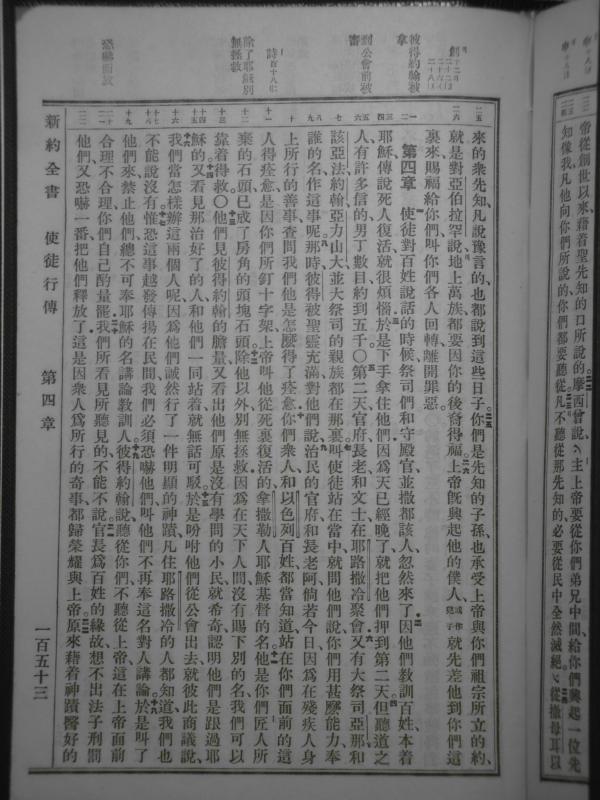 帝從創世以來藉着聖先知的口所說的摩西曾說主上帝要從你們弟兄中間給你們興起一位先
知像我凡他向你們所說的你們都要聽從凡不聽從那先知的必要從民中全然滅絕從撒母耳以
來的衆先知凡說豫言的也都說到這些日子你們是先知的子孫也承受上帝與你們祖宗所立的約、
就是對亞伯拉罕說地上萬族都要因你的後裔得福上帝旣興起他的僕人或作兒子就先差他到你們這
裏來賜福給你們叫你們各人回轉離開罪惡
第四章 使徒對百姓說話的時候祭司們和守殿官並撒都該人忽然來了因他們教訓百姓本着
耶穌傳說死人復活就很煩惱於是下手拿住他們因爲天已經晚了就把他們押到第二天但聽道之
人有許多信的男丁數目約到五千〇第二天官府長老和文士在耶路撒冷聚會又有大祭司亞那和
該亞法約翰亞力山大並大祭司的親族都在那裏叫使徒站在當中就問他們說你們用甚麽能力奉
誰的名作這事呢那時彼得被聖靈充滿對他們說治民的官府和長老阿倘若今日因爲在殘疾人身
上所行的善事查問我們他是怎麽得了痊愈你們衆人和以色列百姓都當知道站在你們面前的這
人得痊愈是因你們所釘十字架上帝叫他從死裏復活的拿撒勒人耶穌基督的名他是你們匠人所
棄的石頭已成了房角的頭塊石頭除他以外別無拯救因爲在天下人間沒有賜下別的名我們可以
靠着得救〇他們見彼得約翰的膽量又看出他們原是沒有學問的小民就希奇認明他們是跟過耶
穌的又看見那治好了的人和他們一同站着就無話可駁於是吩咐他們從公會出去就彼此商議說、
我們當怎樣辦這兩個人呢因爲他們誠然行了一件明顯的神蹟凡住耶路撒冷的人都知道我們也
不能說沒有惟恐這事越發傳揚在民間我們必須恐嚇他們叫他們不再奉這名對人講論於是叫了
他們來禁止他們總不可奉耶穌的名講論教訓人彼得約翰說聽從你們不聽從上帝這在上帝面前
合理不合理你們自己酌量罷我們所看見所聽見的不能不說官長爲百姓的緣故想不出法子刑罰
他們又恐嚇一番把他們釋放了這是因衆人爲所行的奇事都歸榮耀與上帝原來藉着神蹟醫好的
新約全書 使徒行傳 第四章 一百五十三
彼得約翰被拿
到公會前被審
詩百十八
除了耶穌別無拯救